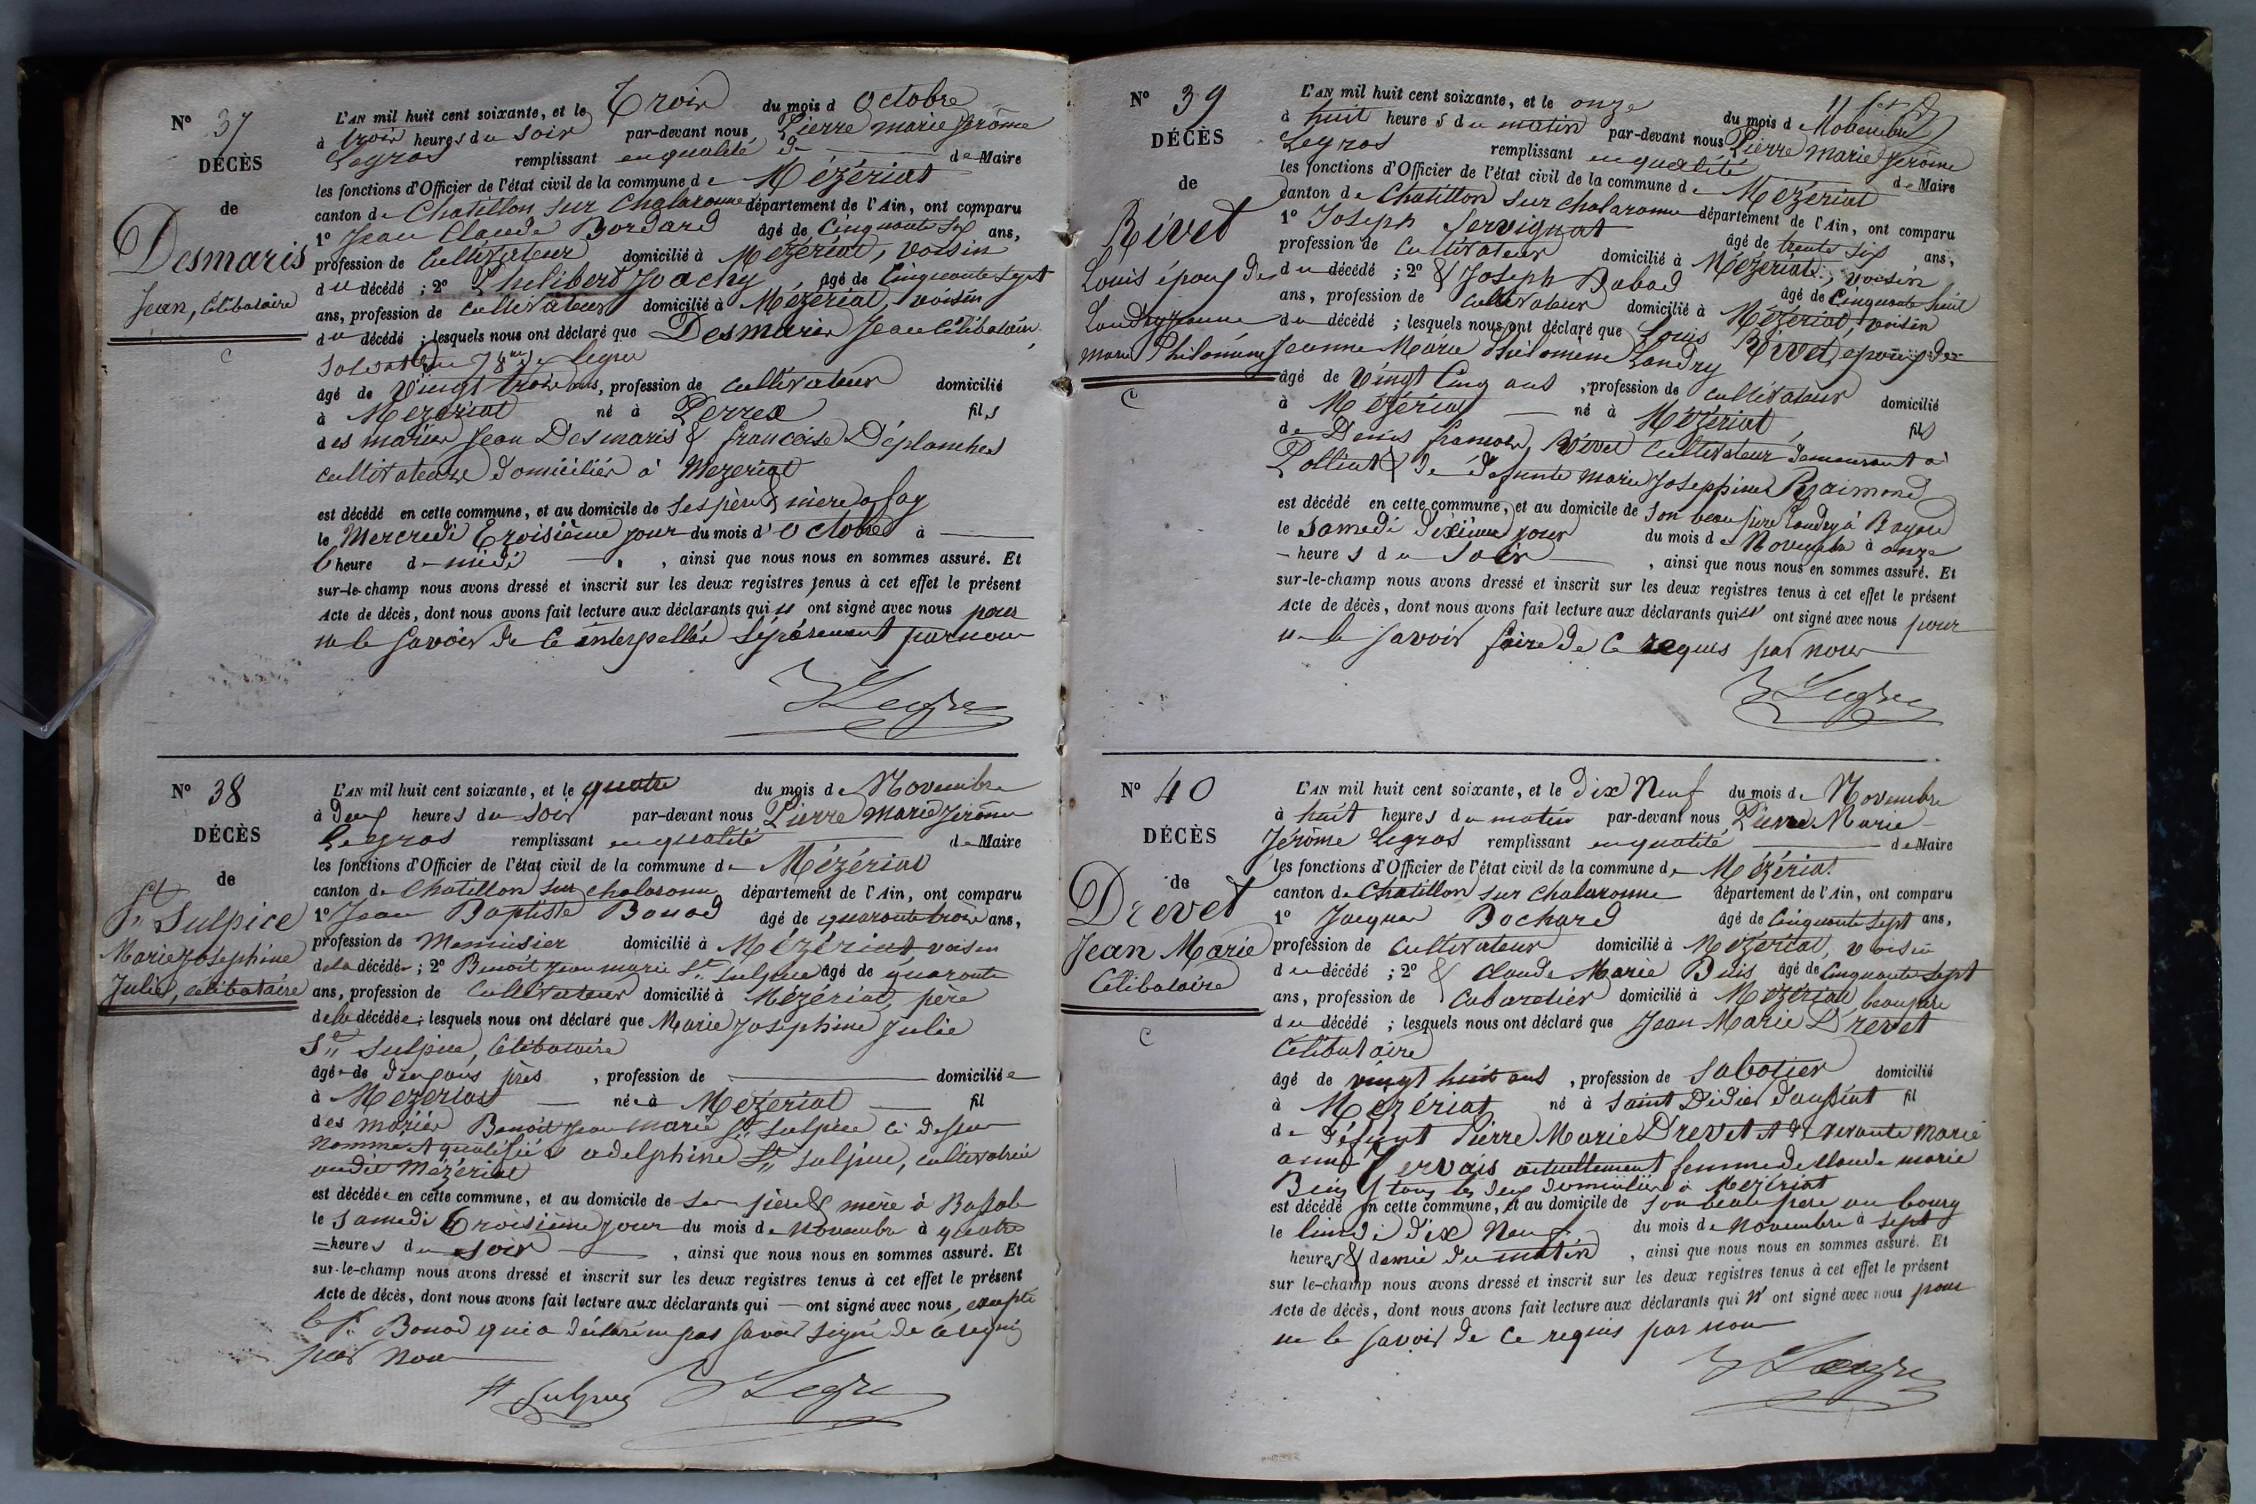 N° 37
DÉCÈS
de
Desmaris
Jean, Célibataire
C
L'AN mil huit cent soixante, et le Trois du mois d Octobre
à trois heures du soir par-devant nous Pierre marie Jerôme
Legros remplissant en qualité de Maire
les fonctions d'Officier de l'état civil de la commune de Mézériat
canton de Chatillon sur Chalaronne département de l'Ain, ont comparu
1° Jean Claude Bordard âgé de Cinquante Six ans,
profession de Cultivateur domicilié à Mézériat, voisin
du décédé ; 2° Philibert Joachy, âgé de Cinquante Sept
ans, profession de cultivateur domicilié à Mézériat, voisin
du décédé ; lesquels nous ont déclaré que Desmaris Jean Célibataire
Soldat au 78me de Ligne
âgé de Vingt trois ans, profession de cultivateur domicilié
à Mézériat né à Perrex fils
des mariés Jean Desmaris & francoise Déplanches
cultivateurs domiciliés à Mézériat
est décédé en cette commune, et au domicile de ses père & mère a fay
le Mercredi Troisième jour du mois d'Octobre à
l'heure de midi , ainsi que nous nous en sommes assuré. Et
sur-le-champ nous avons dressé et inscrit sur les deux registres tenus à cet effet le présent
Acte de décès, dont nous avons fait lecture aux déclarants qui n'ont signé avec nous pour
ne le savoir de ce interpellés séparément par nous
Legros
N° 38
DÉCÈS
de
St Sulpice
Marie Joséphine
Julie, célibataire
L'AN mil huit cent soixante, et le quatre du mois de Novembre
à Deux heures du soir par-devant nous Pierre Marie Jerôme
Legros remplissant en qualité de Maire
les fonctions d'Officier de l'état civil de la commune de Mézériat
canton de Chatillon sur chalaronne département de l'Ain, ont comparu
1° Jean Baptiste Bonod âgé de quarante trois ans,
profession de Menuisier domicilié à Mézériat voisin
de la décédée ; 2° Benoit Jean marie St Sulpice âgé de quarante
ans, profession de Cultivateur domicilié à Mézériat, père
de la décédée ; lesquels nous ont déclaré que Marie Joséphine Julie
St Sulpice, Célibataire
âgée de deux ans près , profession de domiciliée
à Mézériat née à Mézériat fil
des mariés Benoit Jean marie St Sulpice ci dessus
nommé et qualifié & adelphine St Sulpice, cultivatrice
audit Mézériat
est décédée en cette commune, et au domicile de ses père & mère à
le Samedi Troisième jour du mois de Novembre à quatre
heures du soir , ainsi que nous nous en sommes assuré. Et
sur-le-champ nous avons dressé et inscrit sur les deux registres tenus à cet effet le présent
Acte de décès, dont nous avons fait lecture aux déclarants qui ont signé avec nous, excepté
le Sr Bonod qui a déclaré ne pas savoir signer de ce requis
par nous
St Sulpice Legros
N° 39
DÉCÈS
de
Rivet
Louis époux de
Landry Jeanne
marie Philomène
C
L'AN mil huit cent soixante, et le onze du mois de Novembre
à huit heures du matin par-devant nous Pierre Marie Jerôme
Legros remplissant en qualité de Maire
les fonctions d'Officier de l'état civil de la commune de Mézériat
canton de Chatillon sur chalaronne département de l'Ain, ont comparu
1° Joseph Servignat âgé de trente six ans,
profession de Cultivateur domicilié à Mézériat, voisin
du décédé ; 2° & Joseph Babad âgé de Cinquante huit
ans, profession de Cultivateur domicilié à Mézériat, voisin
du décédé ; lesquels nous ont déclaré que Louis Rivet, époux de
Jeanne Marie Philomène Landry
âgé de Vingt Cinq ans , profession de cultivateur domicilié
à Mézériat né à Mézériat, fils
de Denis francois Rivet Cultivateur demeurant à
Polliat & de défunte Marie Josephine Raimond
est décédé en cette commune, et au domicile de son beau père Landry à Bayou
le Samedi dixième jour du mois de Novembre à onze
heures du Soir , ainsi que nous nous en sommes assuré. Et
sur-le-champ nous avons dressé et inscrit sur les deux registres tenus à cet effet le présent
Acte de décès, dont nous avons fait lecture aux déclarants qui n'ont signé avec nous pour
ne le savoir faire de ce requis par nous
Legros
N° 40
DÉCÈS
de
Drevet
Jean Marie
Célibataire
C
L'AN mil huit cent soixante, et le Dix Neuf du mois de Novembre
à huit heures du matin par-devant nous Pierre Marie
Jérôme Legros remplissant en qualité de Maire
les fonctions d'Officier de l'état civil de la commune de Mézériat
canton de Chatillon sur Chalaronne département de l'Ain, ont comparu
1° Jacques Bochard âgé de Cinquante Sept ans,
profession de Cultivateur domicilié à Mézériat, voisin
du décédé ; 2° & Claude Marie Buis, âgé de Cinquante Sept
ans, profession de Cabaretier domicilié à Mézériat beau père
du décédé ; lesquels nous ont déclaré que Jean Marie Drevet
Célibataire
âgé de vingt huit ans , profession de Sabotier domicilié
à Mézériat né à Saint Didier d'aussiat fil
de défunt Pierre Marie Drevet et de vivante Marie
anne Gervais actuellement femme de Claude marie
Buis tous les deux domiciliés à Mézériat
est décédé en cette commune, et au domicile de son beau père au bourg
le lundi dix Neuf du mois de Novembre à sept
heures & demie du matin , ainsi que nous nous en sommes assuré. Et
sur le-champ nous avons dressé et inscrit sur les deux registres tenus à cet effet le présent
Acte de décès, dont nous avons fait lecture aux déclarants qui n'ont signé avec nous pour
ne le savoir de ce requis par nous
Legros